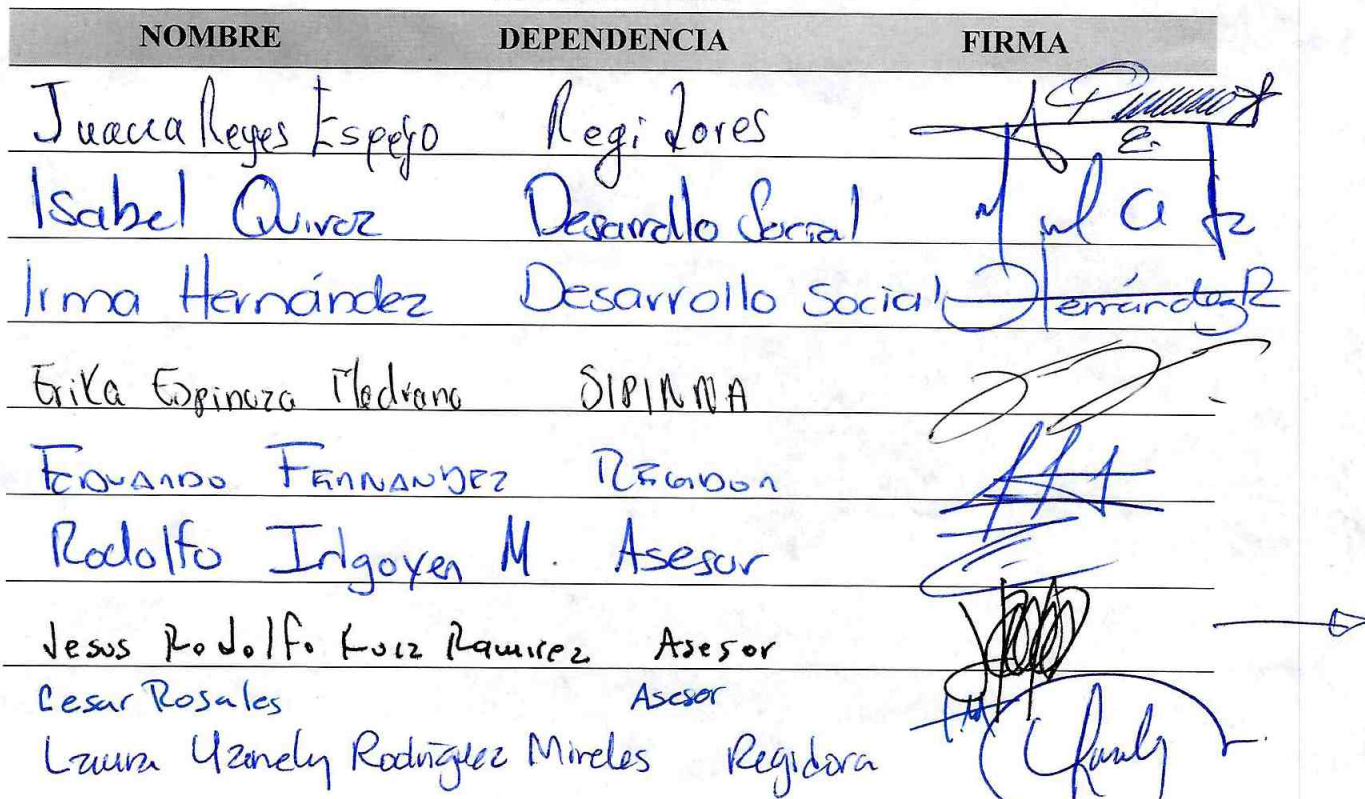 NOMBRE DEPENDENCIA FIRMA
Juana Reyes Espejo Regidores
Isabel Quiroz Desarrollo Social
Irma Hernández Desarrollo Social Hernández R
Erika Espinoza Medrano SIPINNA
EDUARDO FERNANDEZ REGIDOR
Rodolfo Irigoyen M. Asesor
Jesus Rodolfo Ramirez Asesor
Cesar Rosales Asesor
Laura Yanely Rodríguez Mireles Regidora